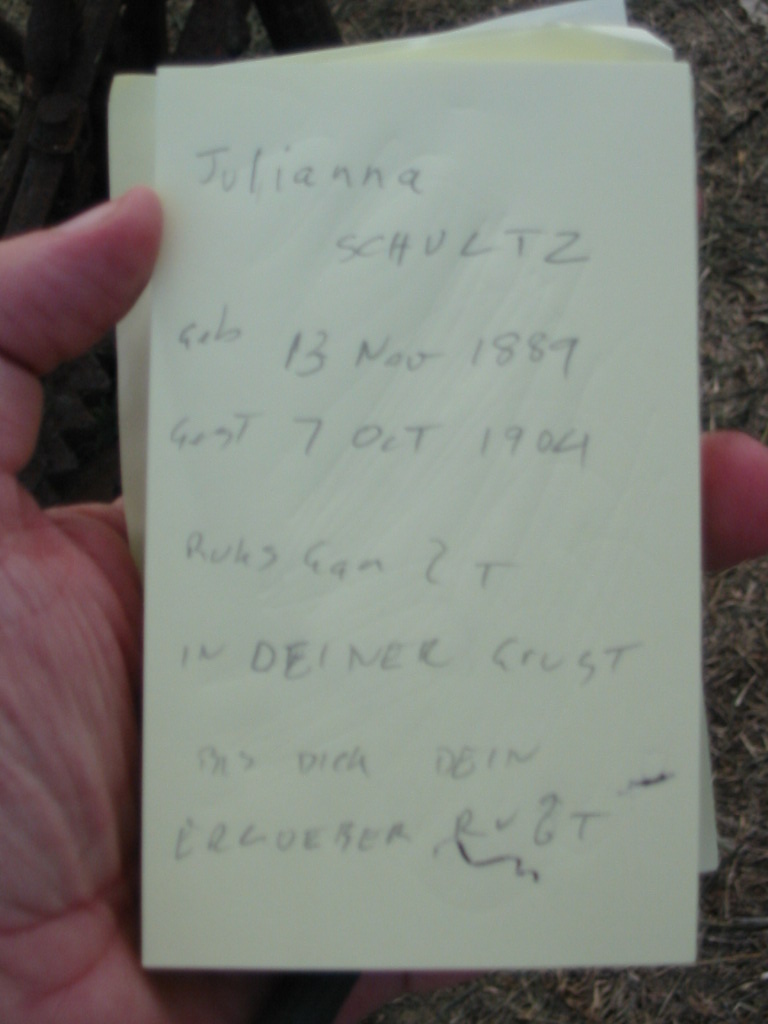 Julianna
SCHULTZ
Geb 13 Nov 1889
Gest 7 OCT 1904
Ruhs
IN DEINER Grust
BIS DICH DEIN
ERLOESER